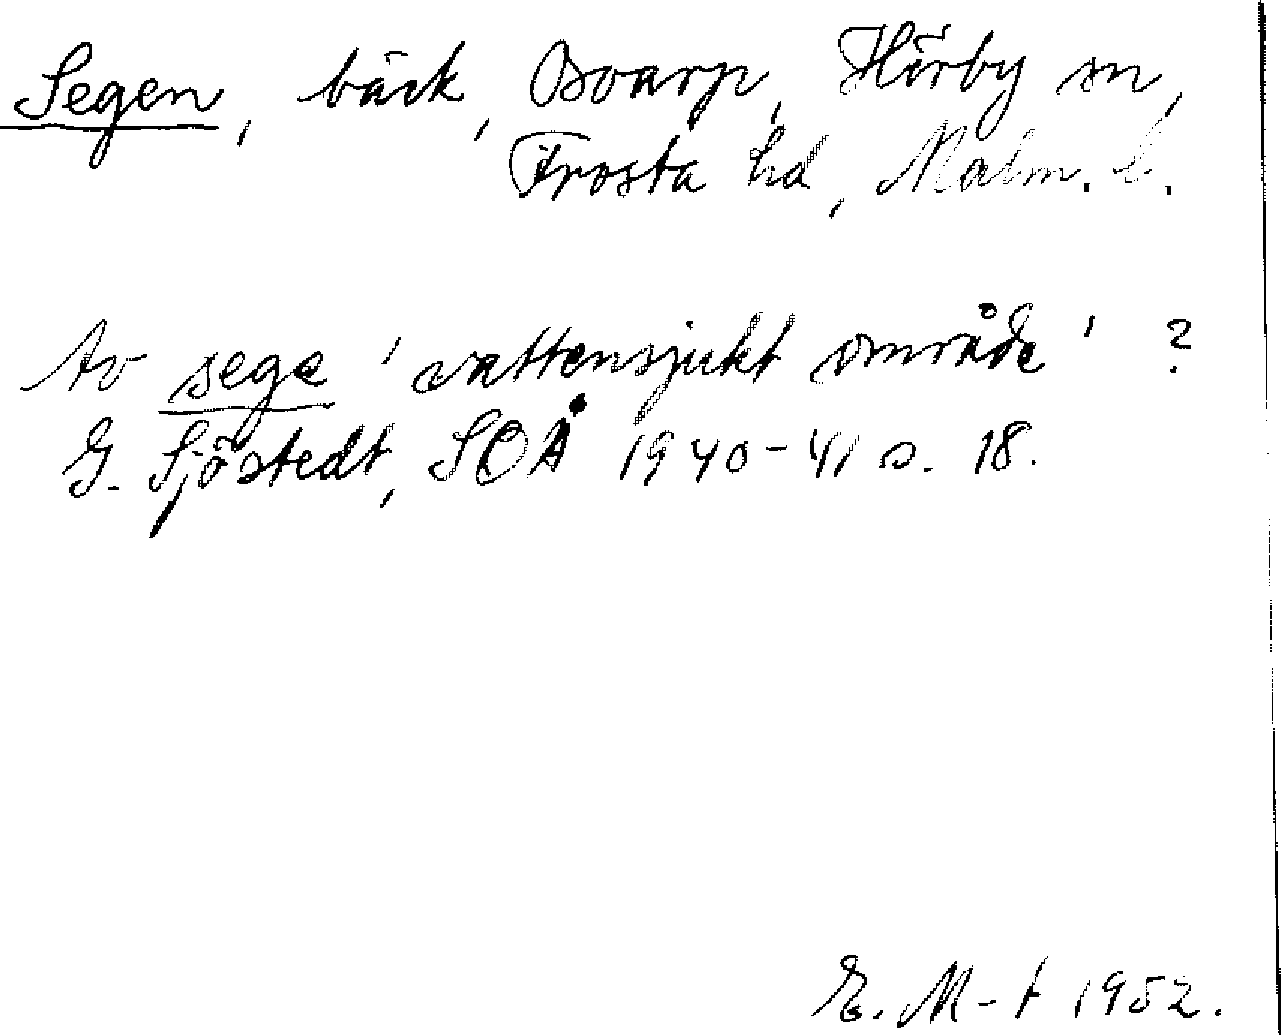 Segen, bäck, Osvarp, Hörby sn,
Frosta hd, Malm. l.
Av sege 'vattensjukt område' ?
G. Sjöstedt, SOÅ 1940-41 s. 18.
E. M-t 1952.